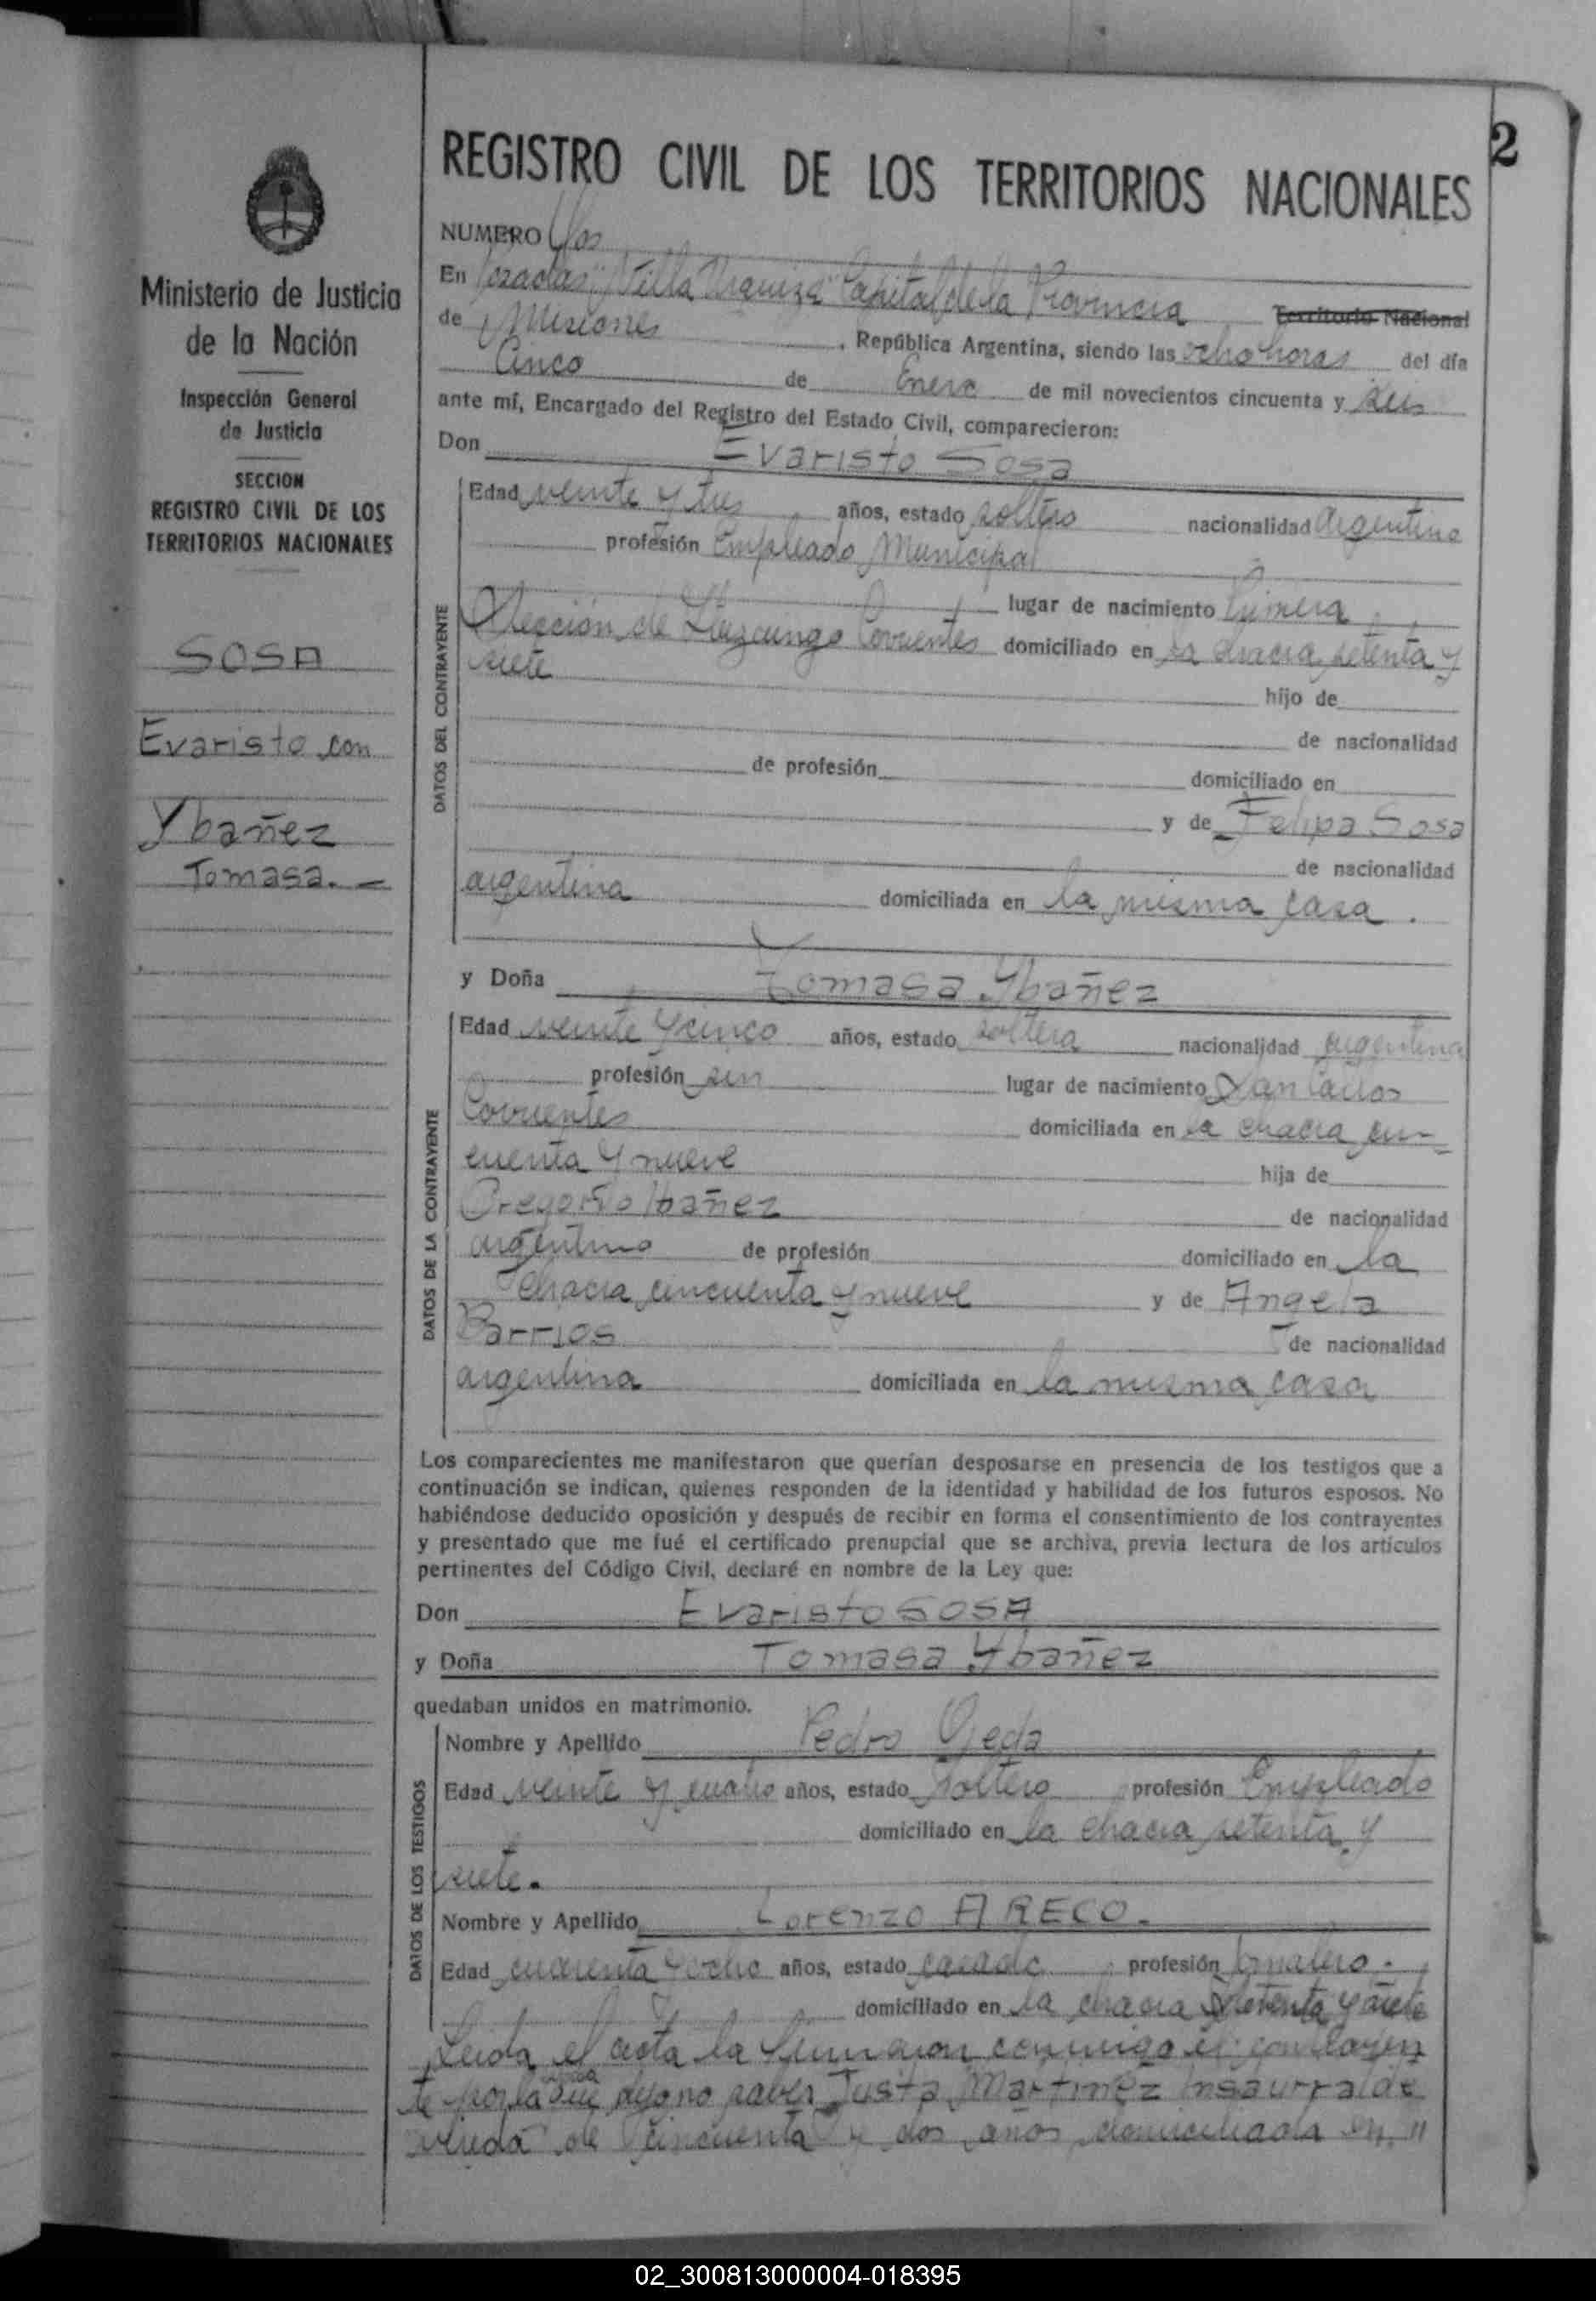 2
Ministerio de Justicia
de la Nación
Inspección General
de Justicia
SECCION
REGISTRO CIVIL DE LOS
TERRITORIOS NACIONALES
SOSA
Evaristo con
Ybañez
Tomasa. -
REGISTRO CIVIL DE LOS TERRITORIOS NACIONALES
NUMERO Dos
En Posadas "Villa Urquiza" Capital de la Provincia Territorio Nacional
de Misiones, República Argentina, siendo las ocho horas del día
Cinco de Enero de mil novecientos cincuenta y seis
ante mí, Encargado del Registro del Estado Civil, comparecieron:
Don Evaristo Sosa
DATOS DEL CONTRAYENTE
Edad veinte y tres años, estado soltero nacionalidad argentino
profesión Empleado Municipal
lugar de nacimiento Primera
Sección de Corrientes domiciliado en la chacra setenta y
siete hijo de
de nacionalidad
de profesión domiciliado en
y de Felipa Sosa
de nacionalidad
argentina domiciliada en la misma casa.
y Doña Tomasa Ybañez
DATOS DE LA CONTRAYENTE
Edad veinte y cinco años, estado soltera nacionalidad argentina
profesión sin lugar de nacimiento San Carlos
Corrientes domiciliada en la chacra cin-
cuenta y nueve hija de
Gregorio Ibañez de nacionalidad
argentino de profesión domiciliado en la
chacra cincuenta y nueve y de Angela
Barrios de nacionalidad
argentina domiciliada en la misma casa
Los comparecientes me manifestaron que querían desposarse en presencia de los testigos que a
continuación se indican, quienes responden de la identidad y habilidad de los futuros esposos. No
habiéndose deducido oposición y después de recibir en forma el consentimiento de los contrayentes
y presentado que me fué el certificado prenupcial que se archiva, previa lectura de los artículos
pertinentes del Código Civil, declaré en nombre de la Ley que:
Don Evaristo SOSA
y Doña Tomasa Ybañez
quedaban unidos en matrimonio.
DATOS DE LOS TESTIGOS
Nombre y Apellido Pedro Ojeda
Edad veinte y cuatro años, estado soltero profesión Empleado
domiciliado en la chacra setenta y
siete.
Nombre y Apellido Lorenzo ARECO.
Edad cuarenta y ocho años, estado casado profesión Jornalero.
domiciliado en la chacra setenta y siete
Leida el acta la firmaron conmigo el
por la que dijo no saber Justa Martinez Insaurralde
viuda de cincuenta y dos años domiciliada en "
02_300813000004-018395